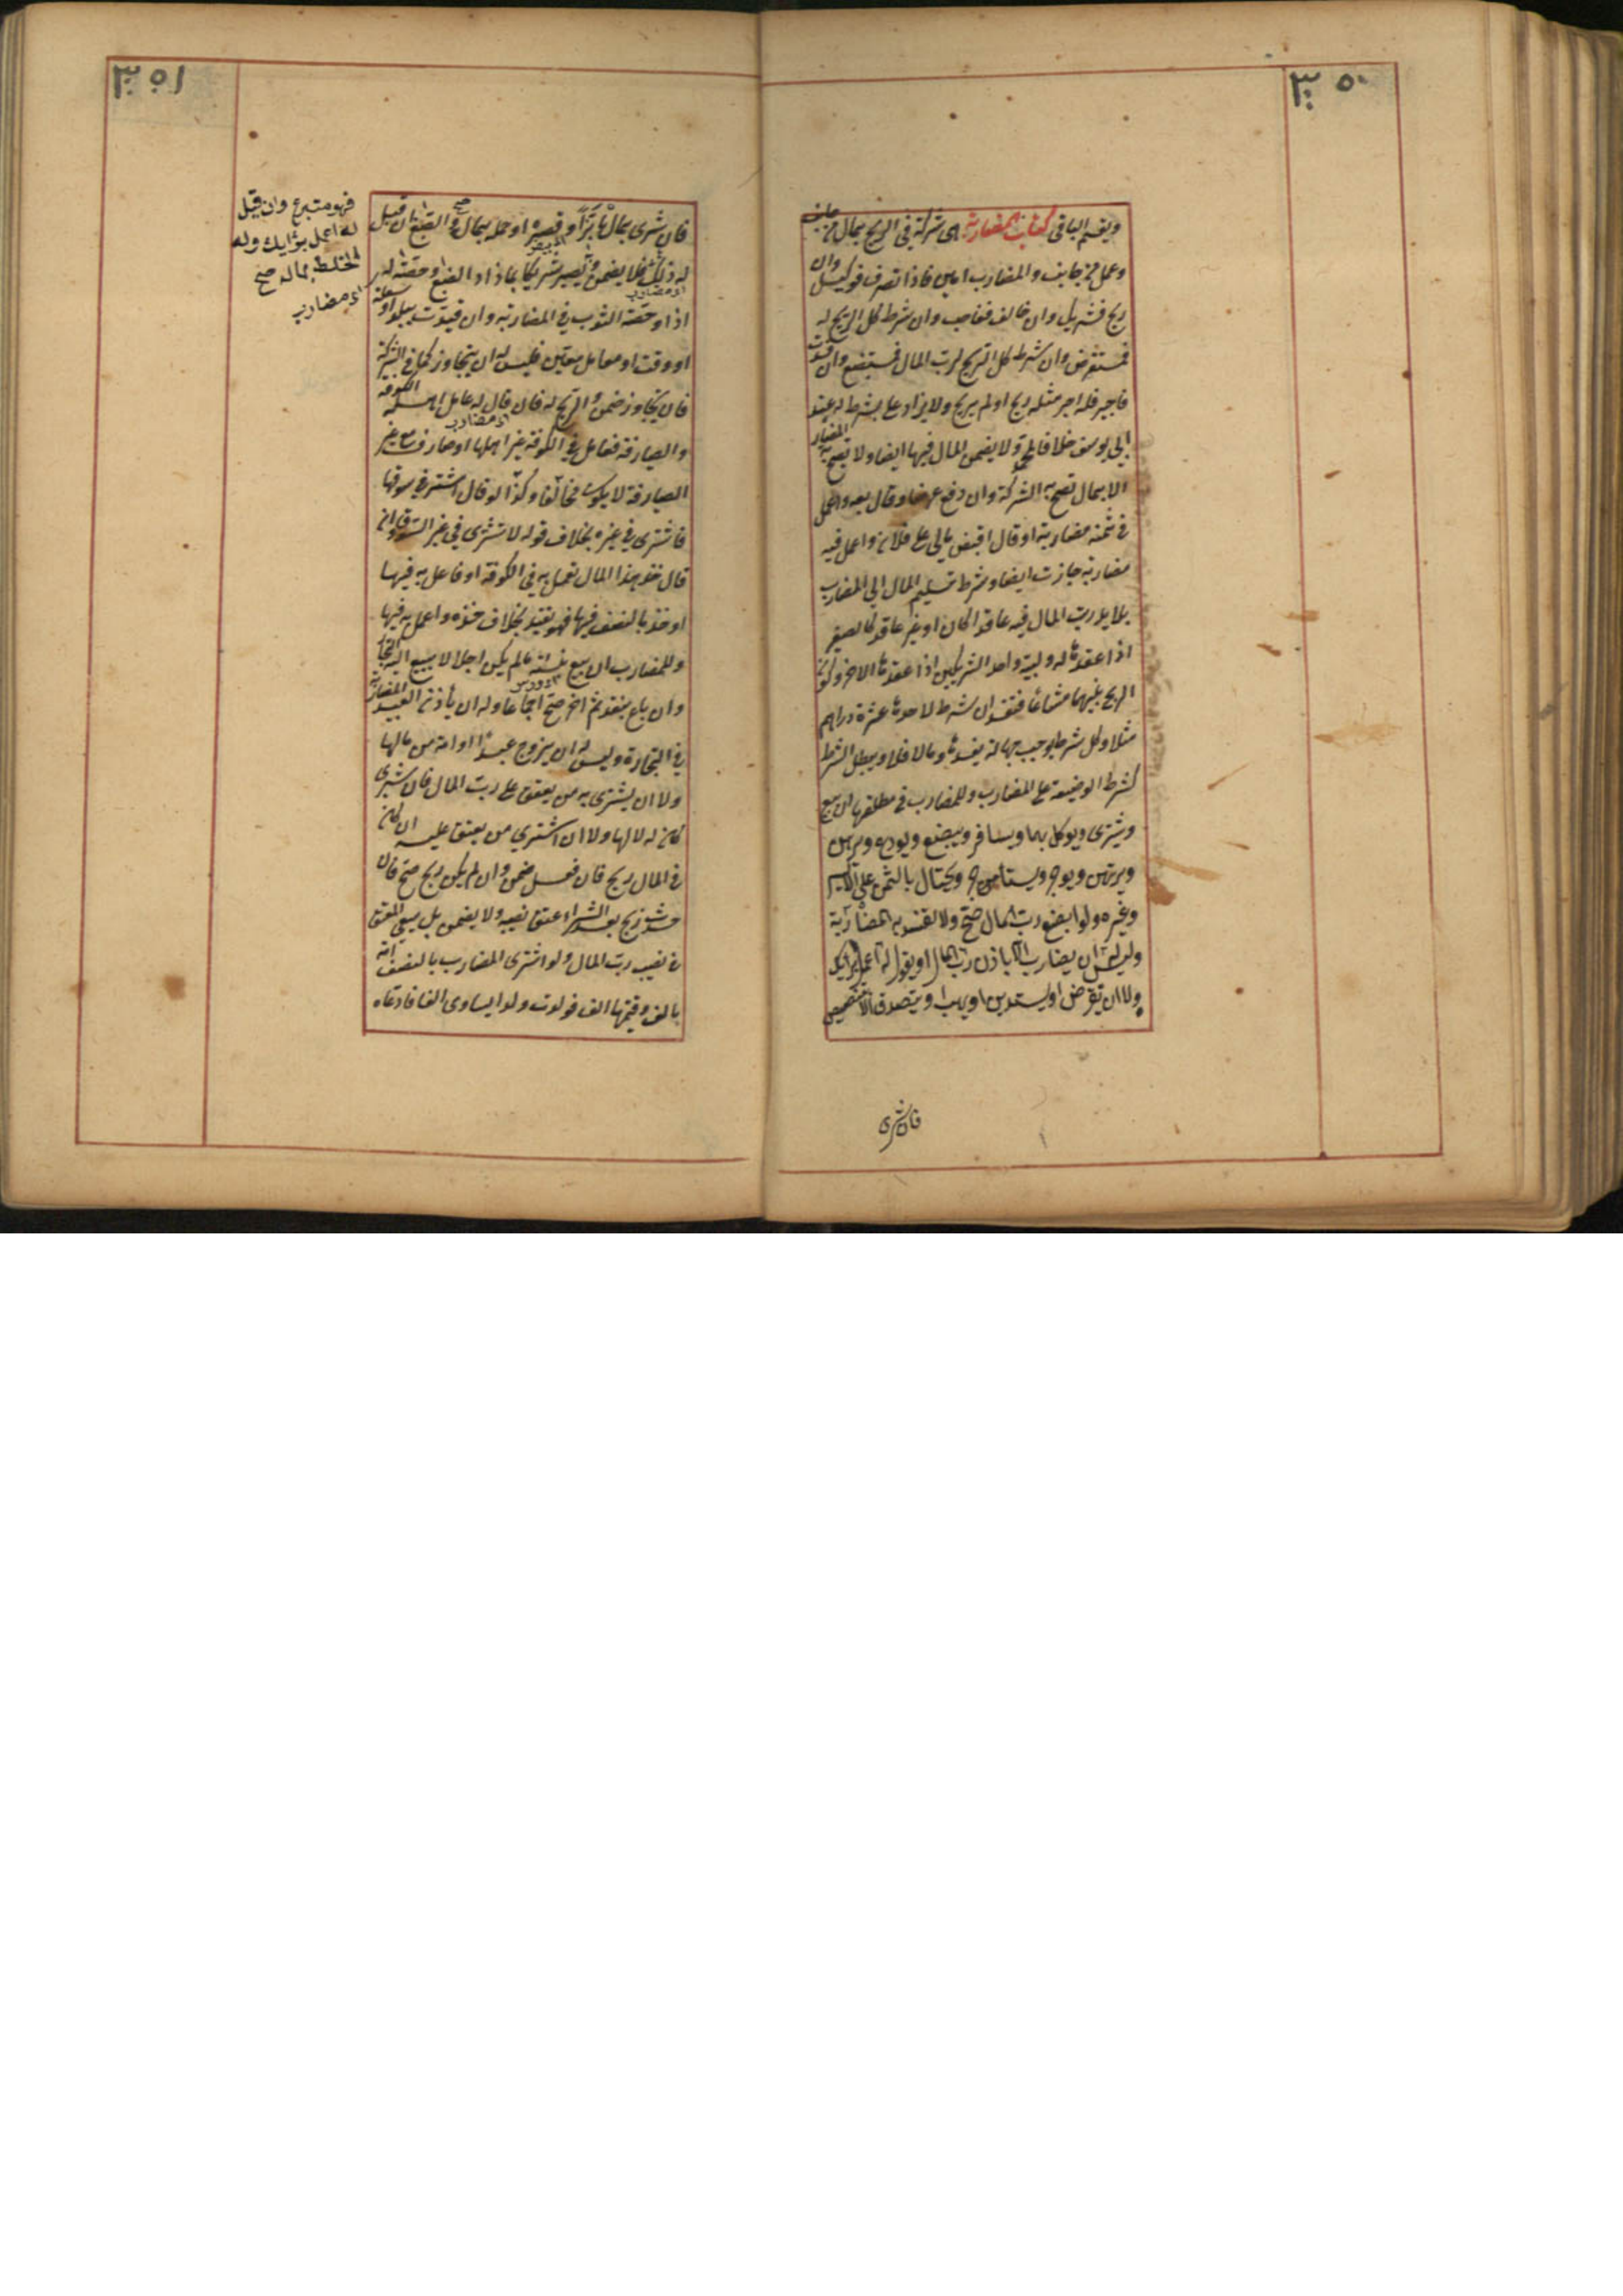 ٣٥٠
ويقسم الباقي كتاب المضاربة هي شركة في الربح بمال من جانب
وعمل من جانب والمضارب امين فاذا تصرف فوكيل وان
ربح فشريك وان خالف فغاصب وان شرط كل الربح له
فمستقرض وان شرط كل الربح لرب المال فمستبضع وان فسدت
فاجير فله اجر مثله ربح او لم يربح ولا يزاد على ما شرط له عند
ابي يوسف خلافا لمحمد ولا يضمن المال فيها ايضا ولا تصح المضاربة
الا بمال تصح به الشركة وان دفع عرضا وقال بعه واعمل
في ثمنه مضاربة او قال اقبض مالي على فلان واعمل فيه
مضاربة جازت ايضا وشرط تسليم المال الى المضارب
بلا يد لرب المال فيه عاقدا كان او غير عاقد كالصغير
اذا عقدها له وليه واحد الشريكين اذا عقدها الاخر وكون
الربح بينهما مشاعا فتفسد ان شرط لاحدهما عشرة دراهم
مثلا وكل شرط يوجب جهالة يفسدها وما لا فلا ويبطل الشرط
كشرط الوضيعة على المضارب وللمضارب في مطلقها ان يبيع
ويشتري ويوكل بهما ويسافر ويبضع ويودع ويرهن
ويرتهن ويوجر ويستاجر ويحتال بالثمن على الايسر
وغيره ولو ابضع رب المال صح ولا تفسد به المضاربة
وليس له ان يضارب الا باذن رب المال او بقوله له اعمل برايك
ولا ان يقرض او يستدين او يهب او يتصدق الا بتنصيص
فان شرى
٣٥١
فان شرى بمالها بزا وقصره او حمله بماله صح او الصبغ ان قيل
له ذلك فلا يضمن ويصير شريكا بما زاد الصبغ وحصته له
اذا وحصة الثوب في المضاربة وان قيدت ببلد او سلعة
او وقت او معامل معين فليس له ان يتجاوز كما في الشركة
فان تجاوز ضمن والربح له فان قال له عامل اهل الكوفة
او الصيارفة فعامل في الكوفة غير اهلها او صارف مع غير
الصيارفة لا يكون مخالفا وكذا لو قال اشتر في سوقها
فاشترى في غيره بخلاف قوله لا تشتري في غير السوق وان
قال خذ هذا المال تعمل به في الكوفة او فاعمل به فيها
او خذه بالنصف فيها فهو تقييد بخلاف خذه واعمل به فيها
وللمضارب ان يبيع بنسئة ما لم يكن اجلا لا يبيع اليه التجار
وان باع بنقد ثم اخر صح اجماعا وله ان ياذن لعبد المضاربة
في التجارة وليس له ان يزوج عبدا او امة من مالها
ولا ان يشتري به من يعتق على رب المال فان شرى
كان له لا لها ولا ان اشترى من يعتق عليه ان كان
في المال ربح فان فعل ضمن وان لم يكن ربح صح فان
حدث ربح بعد الشراء عتق نصيبه ولا يضمن بل يسعى المعتق
في نصيب رب المال ولو اشترى المضارب بالنصف امة
بالف وقيمتها الف فولدت ولدا يساوي الفا فادعاه
فهو متبرع وان قيل
له اعمل برأيك وله
الخلط بماله صح
اي مضارب